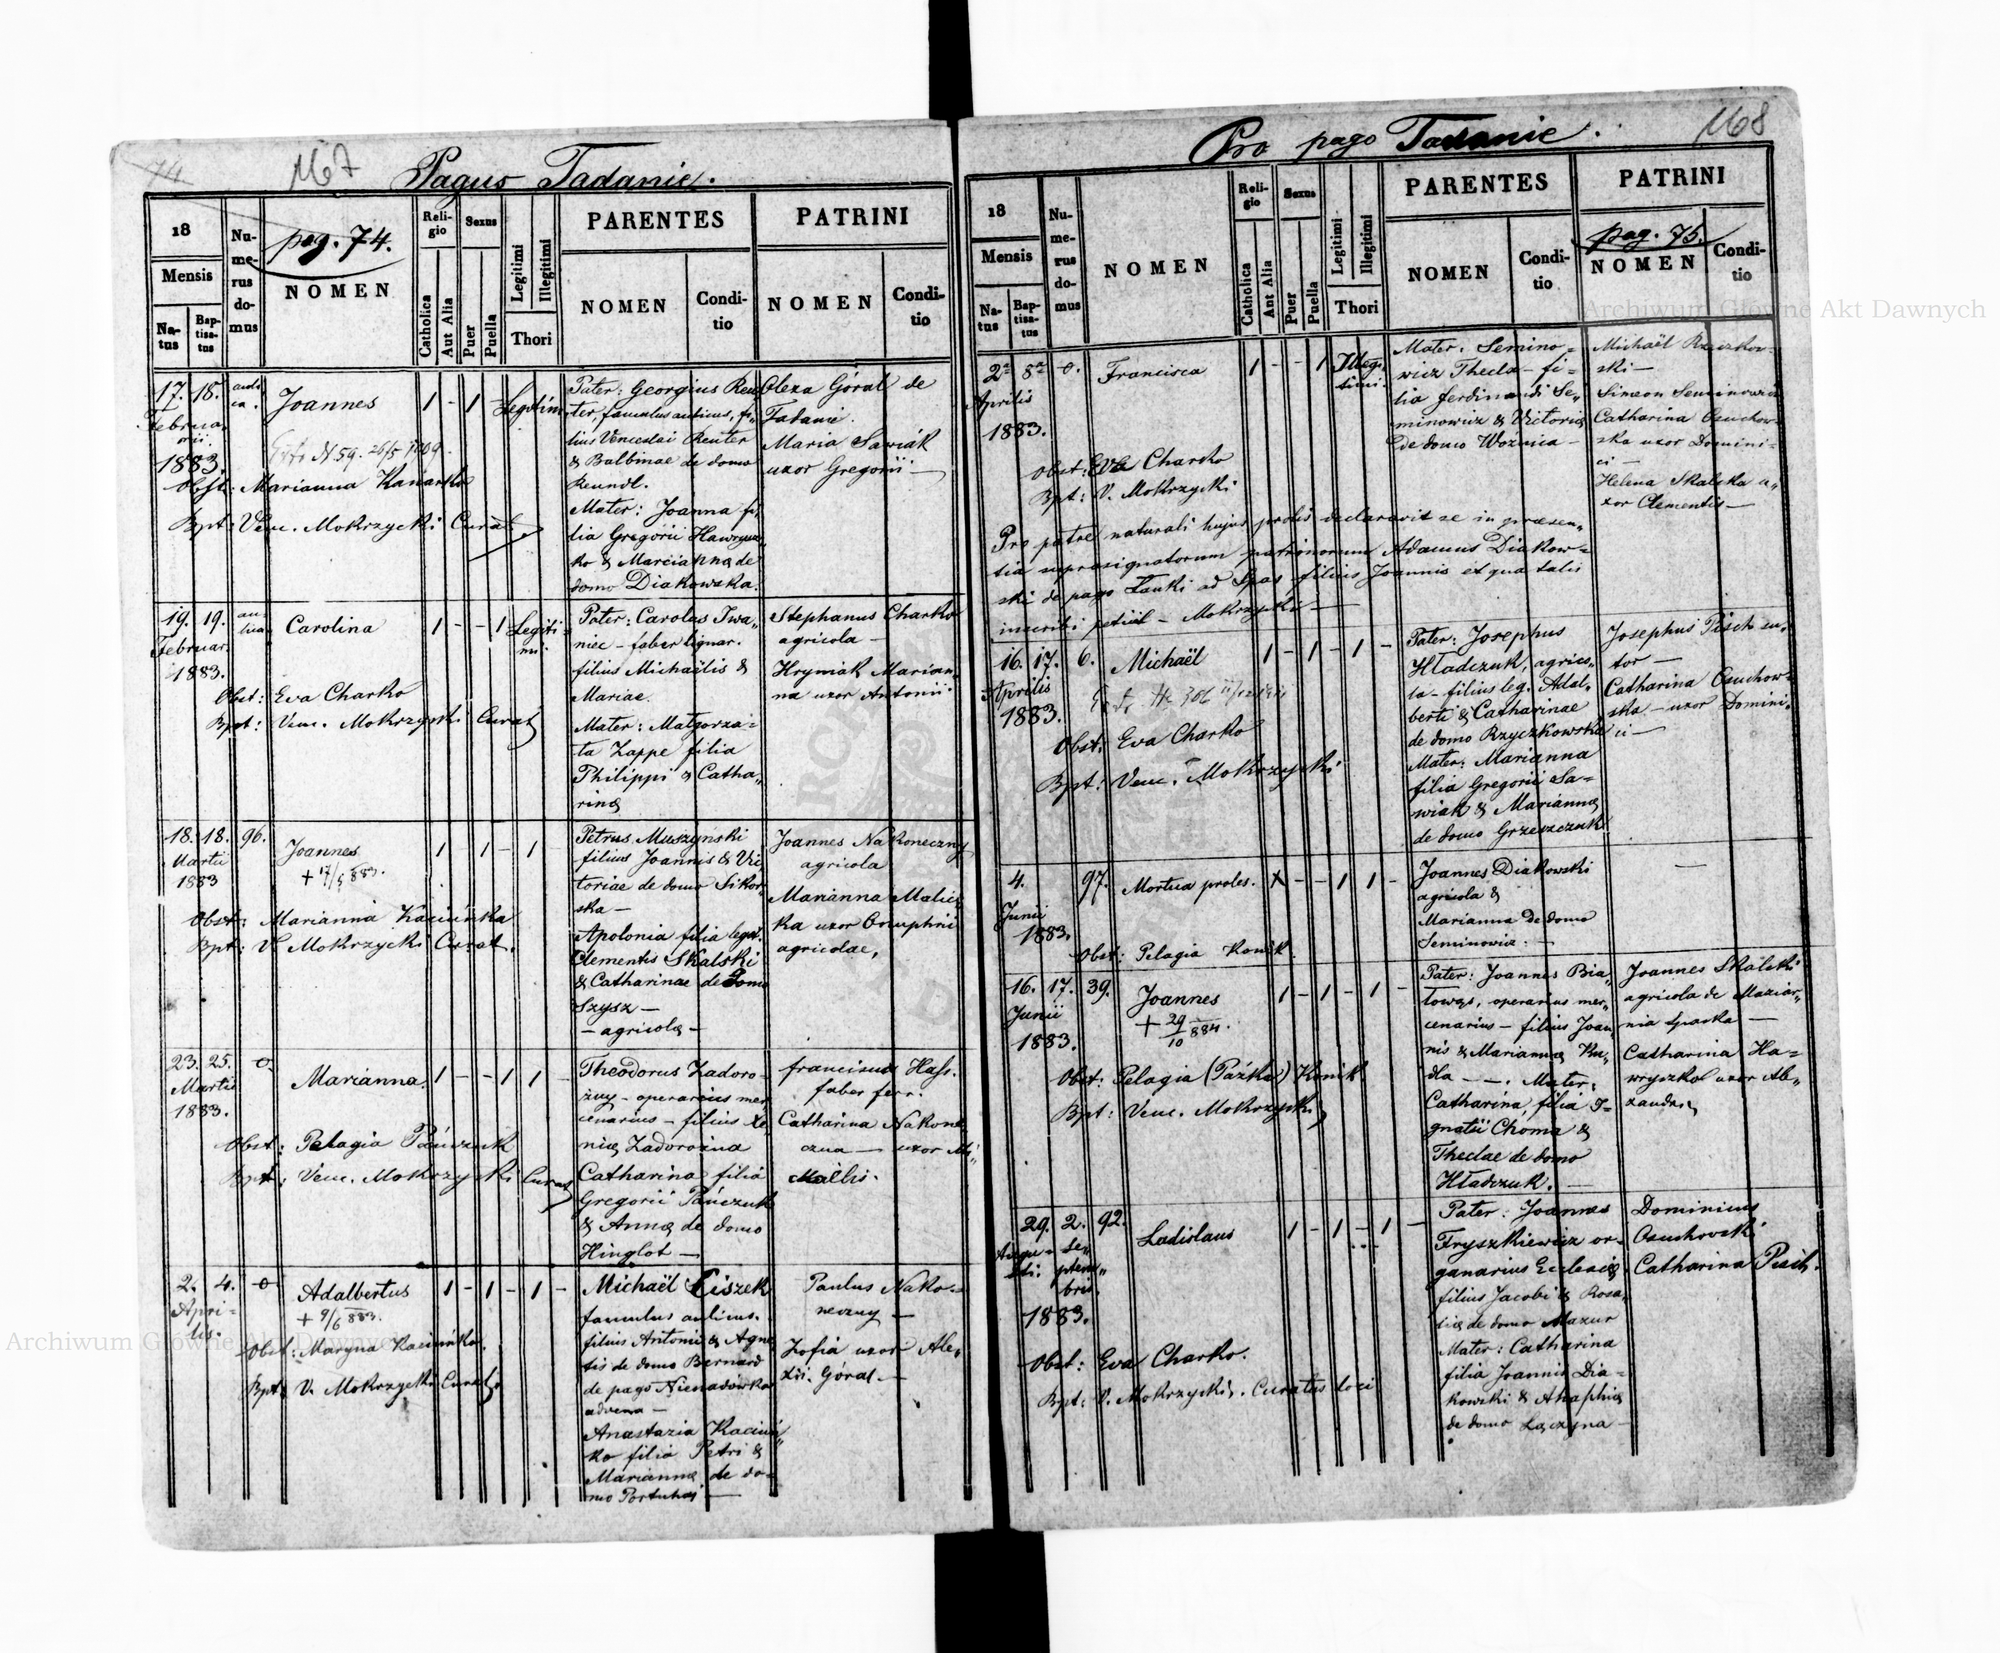 74
167
Pagus Tadanie.
18
Mensis
Na-
tus
Bap-
tisa-
tus
Nu-
me-
rus
do-
mus
pag. 74.
NOMEN
Reli-
gio
Catholica
Aut Alia
Sexus
Puer
Puella
Legitimi
Illegitimi
Thori
PARENTES
NOMEN
Condi-
tio
PATRINI
NOMEN
Condi-
tio
17. 18.
Februa
rii.
1883.
Joannes
1 - 1
Legitim
Obst: Marianna
Bpt: Venc. Mokrzycki Curat
Pater: Georgius Reu
ter, famulus aulicus, fi-
lius Venceslai Reuter
& Balbinae de domo
Reundl.
Mater: Joanna fi-
lia Gregorii Hawrysz
ko & Marciannae de
domo Diakowska.
Olexa Góral de
Tadanie.
Maria Sawiak
uxor Gregorii
19. 19.
Februar.
1883.
Carolina
1 - - 1
Legiti-
mi.
Obst: Eva Charko
Bpt: Venc. Mokrzycki Curat
Pater: Carolus Iwa„
niec - faber lignar.
filius Michaëlis &
Mariae.
Mater: Małgorza-
ta Zappe filia
Philippi & Catha„
rinae
Stephanus Charko
agricola -
Hryniak Marian„
na uxor Antonii
18. 18. 96.
Martii
1883
Joannes
+ 17/5 883.
1 1 - 1
Obst: Marianna Kaciuńka
Bpt: V. Mokrzycki Curat.
Petrus Muszyński
filius Joannis & Vic
toriae de domo Sikor-
ska -
Apolonia filia legit.
Clementis Skalski
& Catharinae de domo
Szysz -
- agricolae -
Joannes Nakoneczny
agricola
Marianna Malic
ka uxor Onuphrii
agricolae,
23. 25. o.
Martii
1883.
Marianna.
1 - - 1 1 -
Obst: Pelagia Pańczuk
Bpt: Venc. Mokrzycki Curat
Theodorus Zadoro-
żny - operarius mer
cenarius - filius Xe
niae Zadorożna
Catharina filia
Gregorii Pańczuk
& Annae de domo
Hinglot -
franciscus Hass.
faber ferr.
Catharina Nakone
czna - uxor Mi„
chaëlis.
2. 4. o
Apri-
lis.
Adalbertus
+ 9/6 883.
1 - 1 - 1 -
Obst: Maryna Kaciuńka.
Bpt: V. Mokrzycki Curat.
Michaël Ciszek
famulus aulicus.
filius Antonii & Agne
tis de domo Bernard
de pago Nienadówka
advena -
Anastazia Kaciuń„
ka filia Petri &
Mariannae de do-
mo
Paulus Nako-
neczny -
Zofia uxor Ale„
xii Góral -
168
Pro pago Tadanie.
18
Mensis
Na-
tus
Bap-
tisa-
tus
Nu-
me-
rus
do-
mus
NOMEN
Reli-
gio
Catholica
Aut Alia
Sexus
Puer
Puella
Legitimi
Illegitimi
Thori
PARENTES
NOMEN
Condi-
tio
PATRINI
pag. 75.
NOMEN
Condi-
tio
Aprilis
1883.
Francisca
1 - - 1
Illegi
timi.
Obst: Eva Charko
Bpt: V. Mokrzycki
Mater: Semino-
wicz Thecla - fi-
lia ferdinandi Se„
minowicz & Victoriae
de domo Woźnica -
Michaël Rzyczkow-
ski -
Simeon Seminowicz
Catharina Osuchow-
ska uxor Domini-
ci -
Helena Skalska u„
xor Clementis -
Pro patre naturali hujus prolis declaravit se in praesen„
tia suprasignatorum patrinorum Adamus Diakow-
ski de pago Łanki ad Spas filius Joannis et qua talis
inscribi petiit - Mokrzycki -
16. 17. 6.
Aprilis
1883.
Michaël
1 - 1 - 1 -
Obst: Eva Charko
Bpt: Venc. Mokrzycki
Pater: Josephus
Hładczuk, agrico„
la - filius leg. Adal„
berti & Catharinae
de domo Rzyczkowska
Mater: Marianna
filia Gregorii Sa-
wiak & Mariannae
de domo Grzeszczuk
Josephus Pisch su„
tor -
Catharina Osuchow-
ska - uxor Domini-
ci -
4. 97.
Junii
1883.
Mortua proles.
X - - 1 1 -
Obst: Pelagia Konik.
Joannes Diakowski
agricola &
Marianna de domo
Seminowicz. -
-
16. 17. 39.
Junii
1883.
Joannes
+ 29/10 884.
1 - 1 - 1 -
Obst: Pelagia (Pazka) Konik
Bpt: Venc. Mokrzycki
Pater: Joannes Bia„
łowąs, operarius mer„
cenarius - filius Joan
nis & Mariannae Ku„
dla - -. Mater:
Catharina, filia I-
gnatii Choma &
Theclae de domo
Hładczuk. -
Joannes Skalski
agricola de Maziar„
nia -
Catharina Ha-
wryszko uxor Ale„
xandri
29. 2. 92.
Augu- Se„
sti: ptem„
bris.
1883.
Ladislaus
1 - 1 - 1 -
Obst: Eva Charko.
Bpt: V. Mokrzycki. Curatus loci
Pater: Joannes
Fryszkiewicz or-
ganarius Ecclesiae
filius Jacobi & Rosa„
liae de domo Mazur
Mater: Catharina
filia Joannis Dia-
kowski & Ahaphiae
de domo Łączyna -
Dominicus
Osuchowski
Catharina Pisch.
Archiwum Główne Akt Dawnych
Archiwum Główne Akt Dawnych